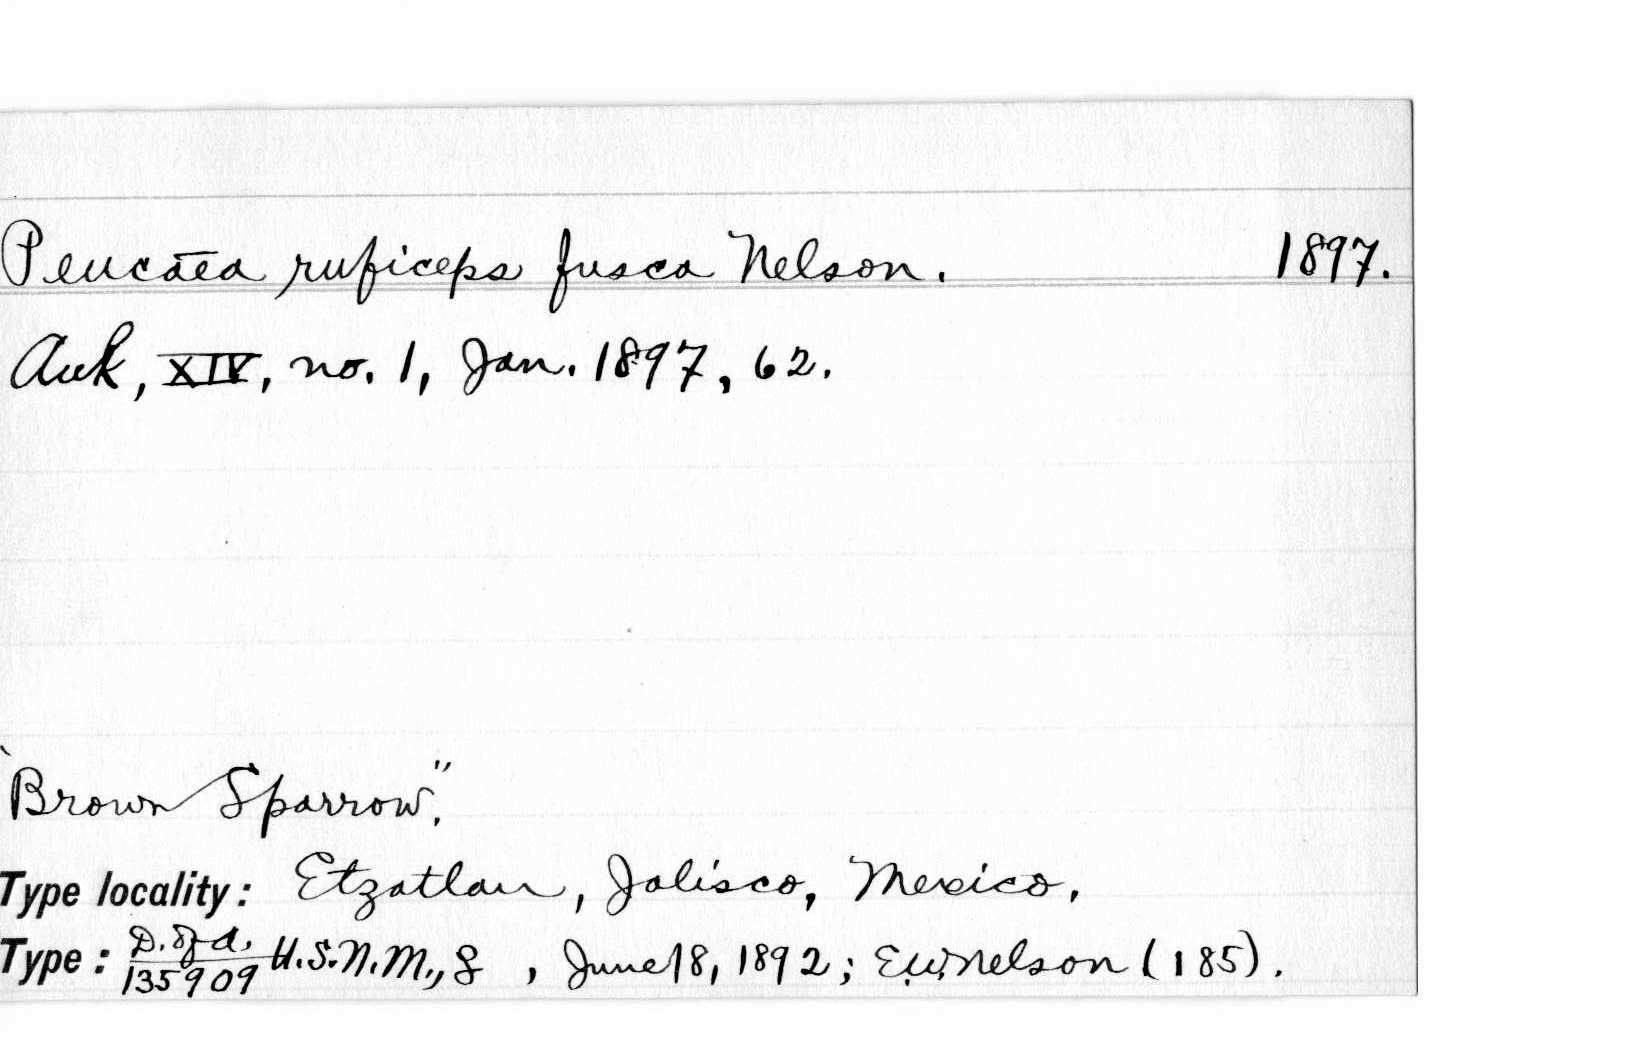 Peucaea ruficeps fusca Nelson. 1897.
Auk, XIV, no. 1, Jan. 1897, 62.
"Brown Sparrow".
Type locality: Etzatlan, Jalisco, Mexico.
Type: D. of A. 135909 U.S.N.M., , June 18, 1892; E.W. Nelson (185).